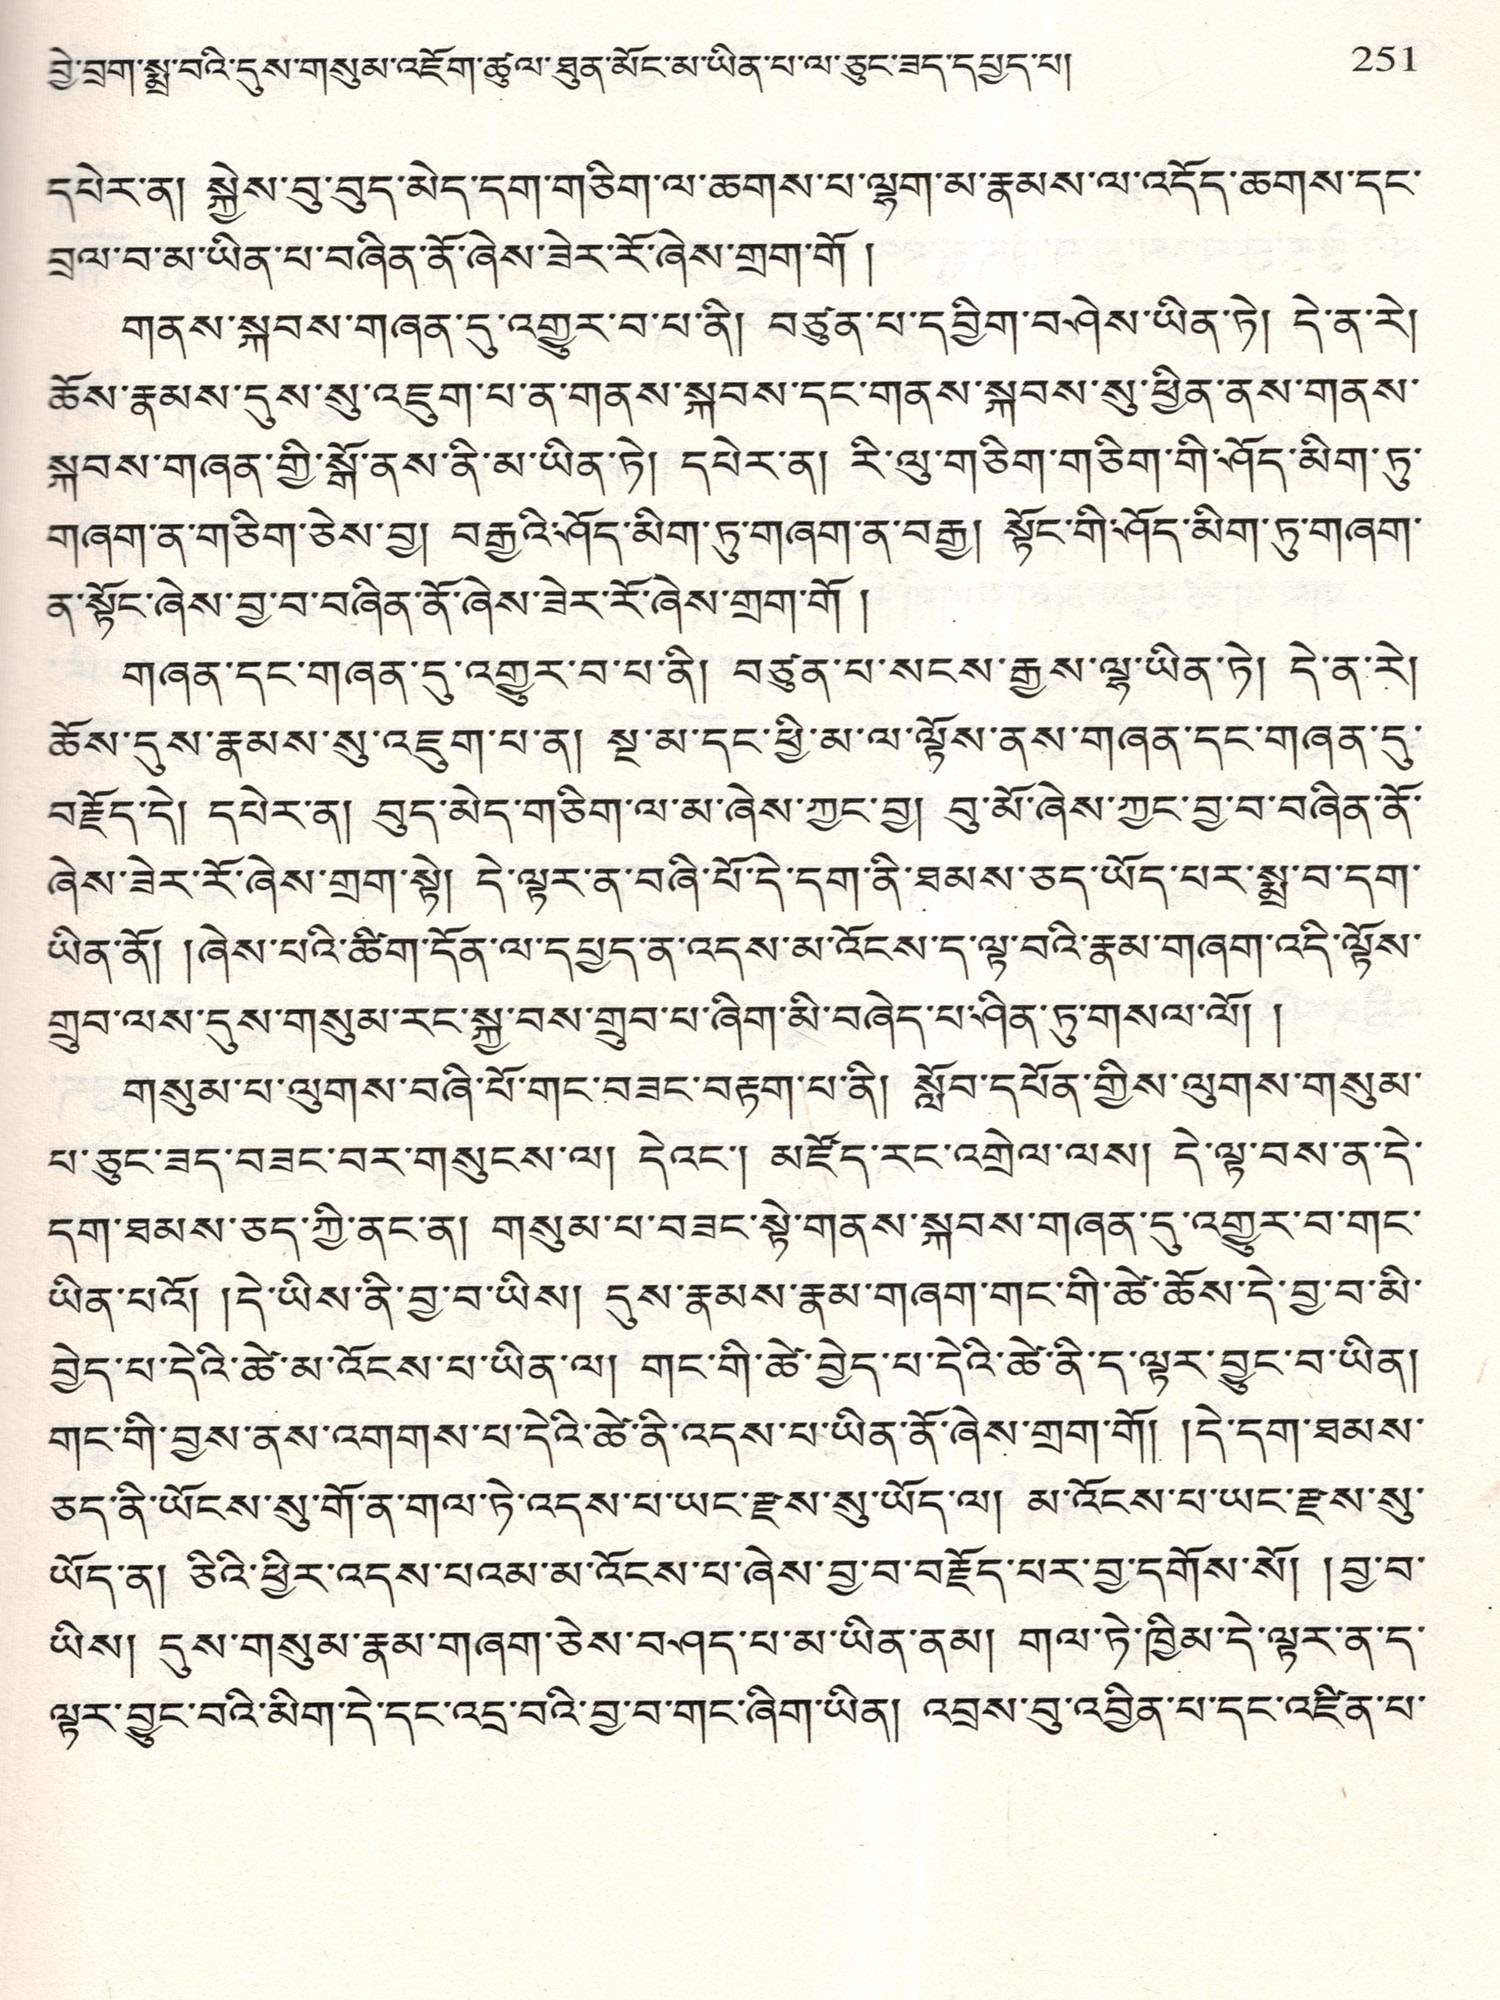 བྱེ་བྲག་སྨྲ་བའི་དུས་གསུམ་འཇོག་ཚུལ་ཐུན་མོང་མ་ཡིན་པ་ལ་ཅུང་ཟད་དཔྱད་པ།
251
དཔེར་ན། སྐྱེས་བུ་བུད་མེད་དག་གཅིག་ལ་ཆགས་པ་ལྷག་མ་རྣམས་ལ་འདོད་ཆགས་དང་
བྲལ་བ་མ་ཡིན་པ་བཞིན་ནོ་ཞེས་ཟེར་རོ་ཞེས་གྲག་གོ །
གནས་སྐབས་གཞན་དུ་འགྱུར་བ་པ་ནི། བཙུན་པ་དབྱིག་བཤེས་ཡིན་ཏེ། དེ་ན་རེ།
ཆོས་རྣམས་དུས་སུ་འཇུག་པ་ན་གནས་སྐབས་དང་གནས་སྐབས་སུ་ཕྱིན་ནས་གནས་
སྐབས་གཞན་གྱི་སྒོ་ནས་ནི་མ་ཡིན་ཏེ། དཔེར་ན། རི་ལུ་གཅིག་གཅིག་གི་ཤོད་མིག་ཏུ་
གཞག་ན་གཅིག་ཅེས་བྱ། བརྒྱའི་ཤོད་མིག་ཏུ་གཞག་ན་བརྒྱ། སྟོང་གི་ཤོད་མིག་ཏུ་གཞག་
ན་སྟོང་ཞེས་བྱ་བ་བཞིན་ནོ་ཞེས་ཟེར་རོ་ཞེས་གྲག་གོ །
གཞན་དང་གཞན་དུ་འགྱུར་བ་པ་ནི། བཙུན་པ་སངས་རྒྱས་ལྷ་ཡིན་ཏེ། དེ་ན་རེ།
ཆོས་དུས་རྣམས་སུ་འཇུག་པ་ན། སྔ་མ་དང་ཕྱི་མ་ལ་ལྟོས་ནས་གཞན་དང་གཞན་དུ་
བརྗོད་དེ། དཔེར་ན། བུད་མེད་གཅིག་ལ་མ་ཞེས་ཀྱང་བྱ། བུ་མོ་ཞེས་ཀྱང་བྱ་བ་བཞིན་ནོ་
ཞེས་ཟེར་རོ་ཞེས་གྲག་སྟེ། དེ་ལྟར་ན་བཞི་པོ་དེ་དག་ནི་ཐམས་ཅད་ཡོད་པར་སྨྲ་བ་དག་
ཡིན་ནོ། །ཞེས་པའི་ཚིག་དོན་ལ་དཔྱད་ན་འདས་མ་འོངས་ད་ལྟ་བའི་རྣམ་གཞག་འདི་ལྟོས་
གྲུབ་ལས་དུས་གསུམ་རང་སྐྱ་བས་གྲུབ་པ་ཞིག་མི་བཞེད་པ་ཤིན་ཏུ་གསལ་ལོ། །
གསུམ་པ་ལུགས་བཞི་པོ་གང་བཟང་བརྟག་པ་ནི། སློབ་དཔོན་གྱིས་ལུགས་གསུམ་
པ་ཅུང་ཟད་བཟང་བར་གསུངས་ལ། དེའང་། མཛོད་རང་འགྲེལ་ལས། དེ་ལྟ་བས་ན་དེ་
དག་ཐམས་ཅད་ཀྱི་ནང་ན། གསུམ་པ་བཟང་སྟེ་གནས་སྐབས་གཞན་དུ་འགྱུར་བ་གང་
ཡིན་པའོ། །དེ་ཡིས་ནི་བྱ་བ་ཡིས། དུས་རྣམས་རྣམ་གཞག་གང་གི་ཚེ་ཆོས་དེ་བྱ་བ་མི་
བྱེད་པ་དེའི་ཚེ་མ་འོངས་པ་ཡིན་ལ། གང་གི་ཚེ་བྱེད་པ་དེའི་ཚེ་ནི་ད་ལྟར་བྱུང་བ་ཡིན།
གང་གི་བྱས་ནས་འགགས་པ་དེའི་ཚེ་ནི་འདས་པ་ཡིན་ནོ་ཞེས་གྲག་གོ། །དེ་དག་ཐམས་
ཅད་ནི་ཡོངས་སུ་གོ་ན་གལ་ཏེ་འདས་པ་ཡང་རྫས་སུ་ཡོད་ལ། མ་འོངས་པ་ཡང་རྫས་སུ་
ཡོད་ན། ཅིའི་ཕྱིར་འདས་པའམ་མ་འོངས་པ་ཞེས་བྱ་བ་བརྗོད་པར་བྱ་དགོས་སོ། །བྱ་བ་
ཡིས། དུས་གསུམ་རྣམ་གཞག་ཅེས་བཤད་པ་མ་ཡིན་ནམ། གལ་ཏེ་ཁྱིམ་དེ་ལྟར་ན་ད་
ལྟར་བྱུང་བའི་མིག་དེ་དང་འདྲ་བའི་བྱ་བ་གང་ཞིག་ཡིན། འབྲས་བུ་འབྱིན་པ་དང་འཛིན་པ་